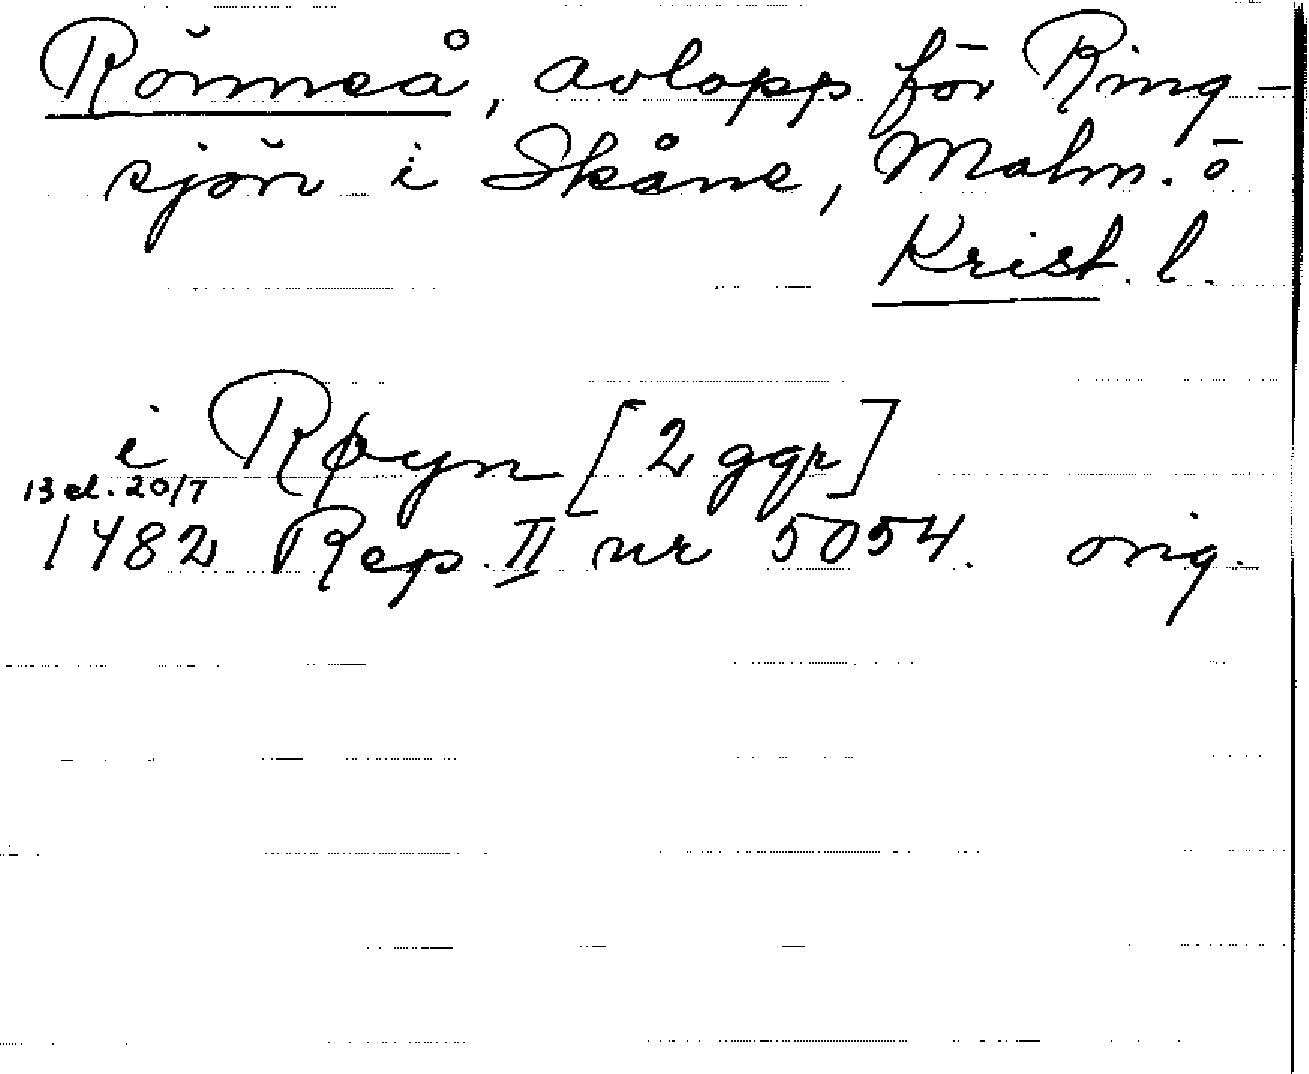 Rönneå, avlopp för Ring-
sjön i Skåne, Malm. ö
Krist. l.
i Røyn [2 ggr]
13 el. 20/7
1482 Rep. II nr 5054. orig.